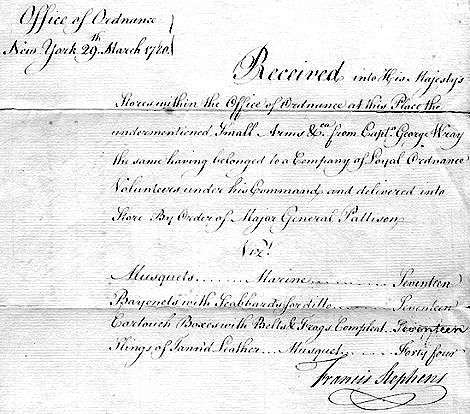 Office of Ordnance
New York 29th March 1780
Received into His Majesty's
Stores within the Office of Ordnance at this Place the
undermentioned Small Arms &ca from Captn George Wray
the same having belonged to a Company of Loyal Ordnance
Volunteers under his Command and delivered into
Store By Order of Major General Pattison
Vizt
Musquets ...... Marine ............ Seventeen
Bayonets with Scabbards for ditto ............ Seventeen
Cartouch Boxes with Belts & Frogs Compleat. Seventeen
Slings of Tann'd Leather ... Musquet ...... Forty four
Francis Stephens